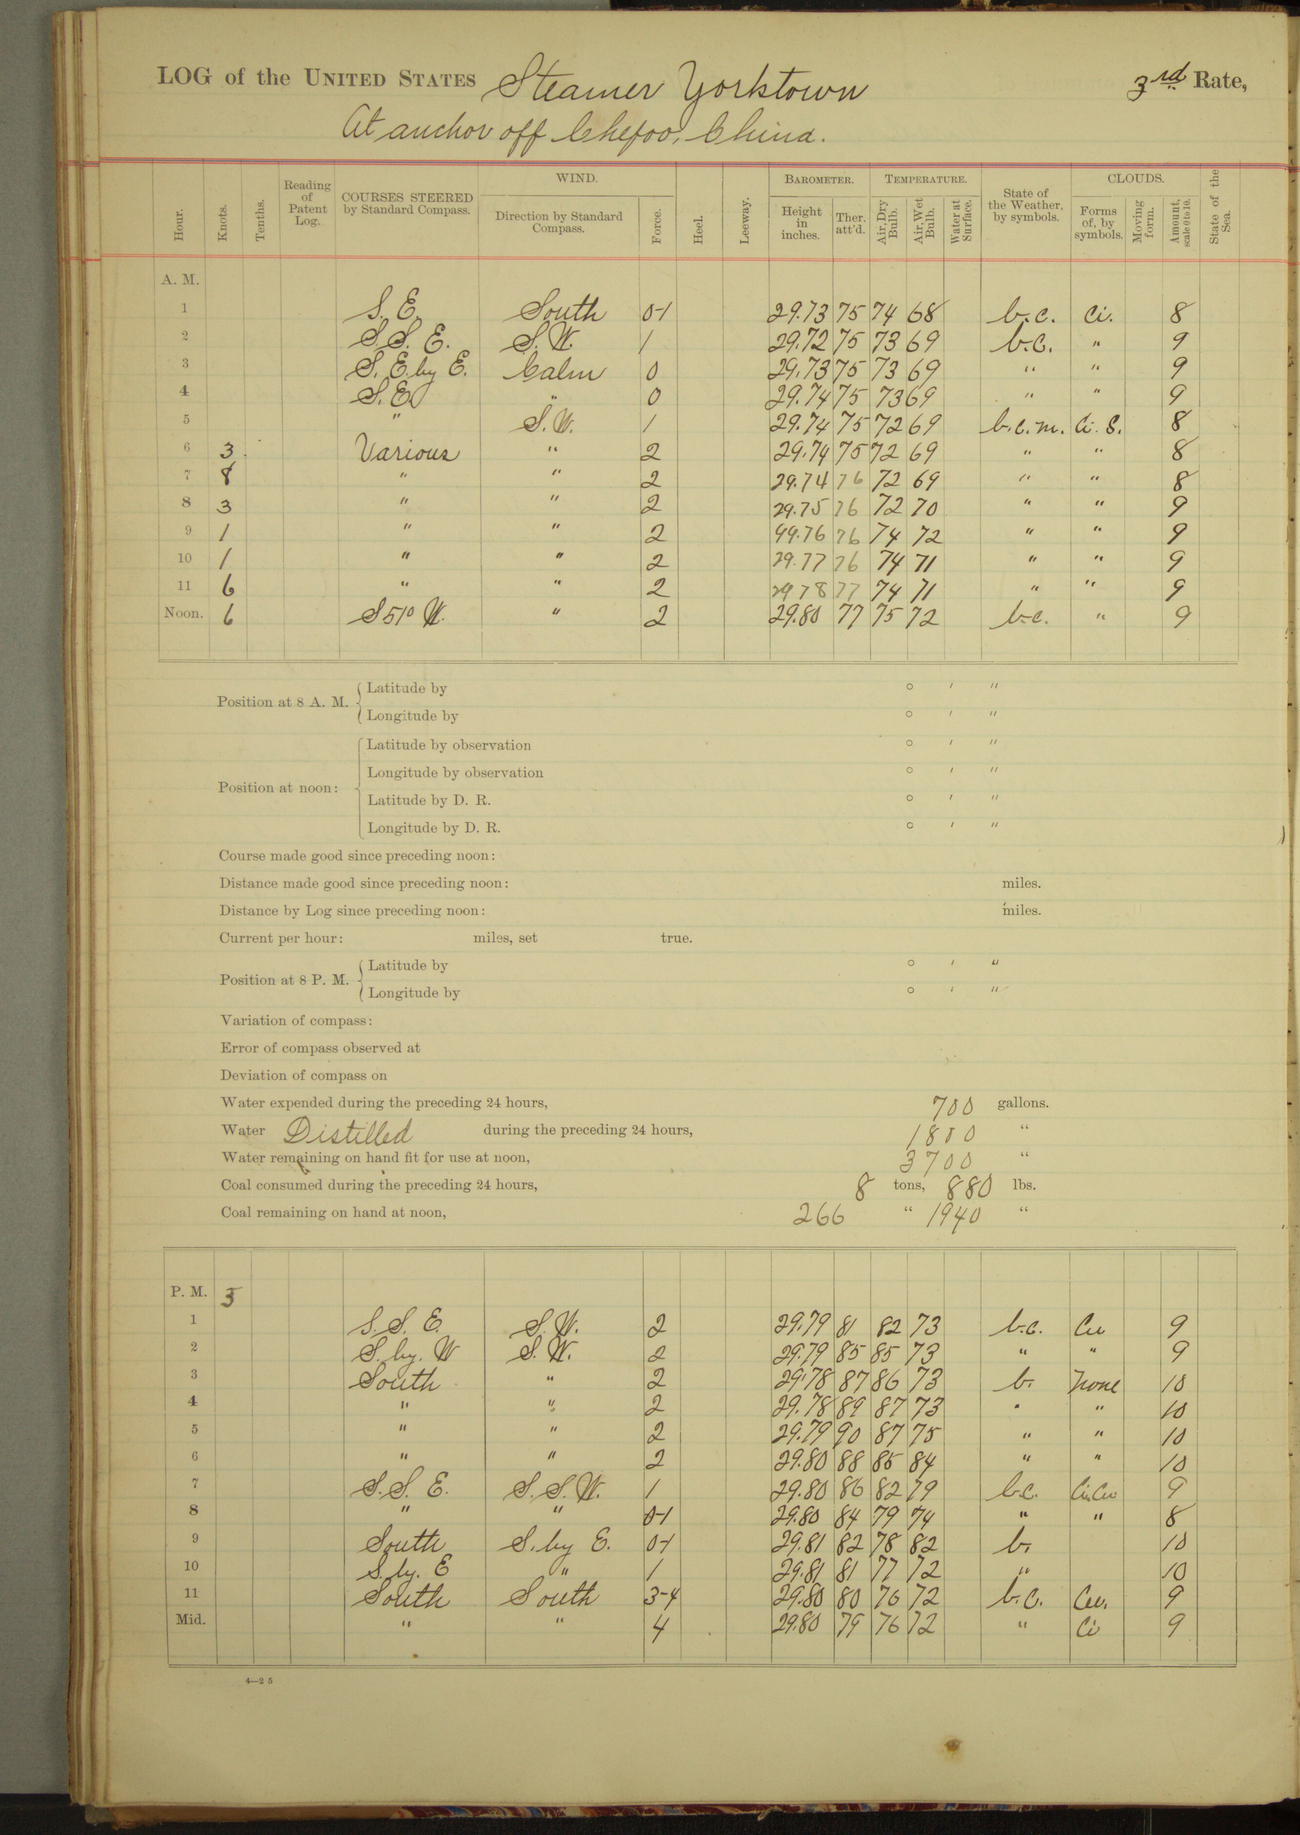 LOG of the UNITED STATES Steamer Yorktown 3rd Rate,
At anchor off Chefoo, China.
Hour. Knots. Tenths. Reading of Patent Log. COURSES STEERED by Standard Compass. WIND. Direction by Standard Compass. Force. Heel. Leeway. BAROMETER. Height in inches. Ther. att'd. TEMPERATURE. Air, Dry Bulb. Air, Wet Bulb. Water at Surface. State of the Weather, by symbols. CLOUDS. Forms of, by symbols. Moving form. Amount, scale 0 to 10. State of the Sea.
A. M.
1 S. E. South 0-1 29.73 75 74 68 b.c. Ci. 8
2 S.S. E. S.W. 1 29.72 75 73 69 b.c. " 9
3 S. E. by E. Calm 0 29.73 75 73 69 " " 9
4 S.E. " 0 29.74 75 73 69 " " 9
5 " S.W. 1 29.74 75 72 69 b.c.m. Ci. S. 8
6 3 Various " 2 29.74 75 72 69 " " 8
7 8 " " 2 29.74 76 72 69 " " 8
8 3 " " 2 29.75 76 72 70 " " 9
9 1 " " 2 99.76 76 74 72 " " 9
10 1 " " 2 29.77 76 74 71 " " 9
11 6 " " 2 29 78 77 74 71 " " 9
Noon. 6 S 51° W. " 2 29.80 77 75 72 b.c. " 9
Position at 8 A. M. Latitude by ° ′ ″
Longitude by ° ′ ″
Position at noon: Latitude by observation ° ′ ″
Longitude by observation ° ′ ″
Latitude by D. R. ° ′ ″
Longitude by D. R. ° ′ ″
Course made good since preceding noon:
Distance made good since preceding noon: miles.
Distance by Log since preceding noon: miles.
Current per hour: miles, set true.
Position at 8 P. M. Latitude by ° ′ ″
Longitude by ° ′ ″
Variation of compass:
Error of compass observed at
Deviation of compass on
Water expended during the preceding 24 hours, 700 gallons.
Water Distilled during the preceding 24 hours, 1800 "
Water remaining on hand fit for use at noon, 3700 "
Coal consumed during the preceding 24 hours, 8 tons, 880 lbs.
Coal remaining on hand at noon, 266 " 1940 "
P. M. 5
1 S. S. E. S.W. 2 29.79 81 82 73 b.c. Cu 9
2 S. by. W S.W. 2 29.79 85 85 73 " " 9
3 South " 2 29.78 87 86 73 b. None 10
4 " " 2 29.78 89 87 73 " " 10
5 " " 2 29.79 90 87 75 " " 10
6 " " 2 29.80 88 85 84 " " 10
7 S.S. E. S.S.W. 1 29.80 86 82 79 b.c. Ci.Cu 9
8 " " 0-1 29.80 84 79 74 " " 8
9 South S. by E. 0-1 29.81 82 78 82 b. 10
10 S. by. E " 1 29.81 81 77 72 " 10
11 South South 3-4 29.80 80 76 72 b.c. Cu. 9
Mid. " " 4 29.80 79 76 72 " Ci 9
4—2 5